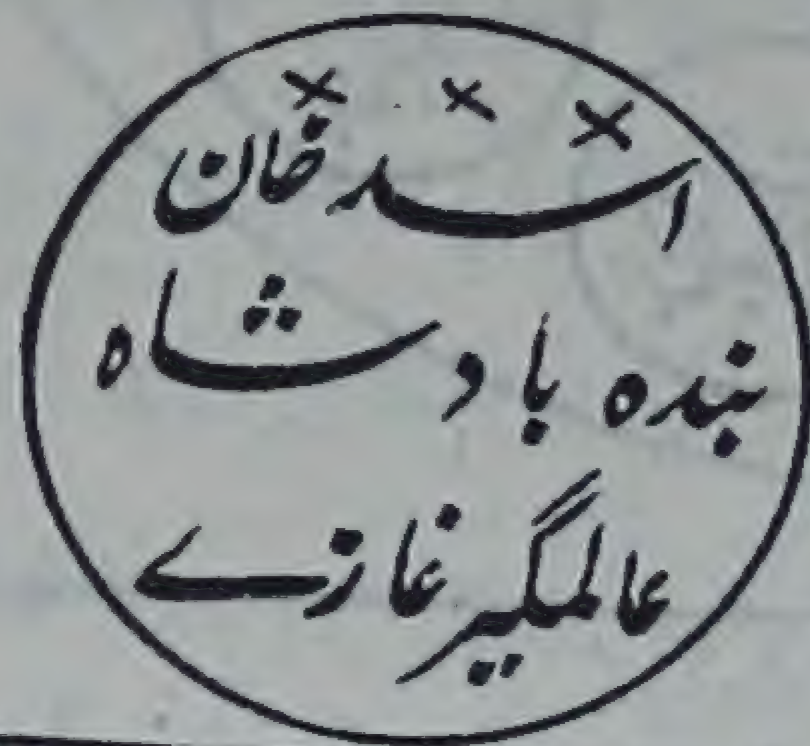 × × ×
اسد خان
بنده بادشاه
عالمگیر غازے